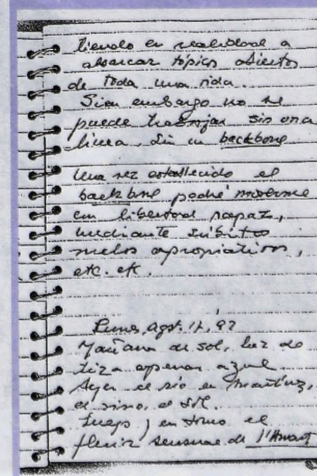 tiendo en realidad a
abarcar tópicos abiertos
de toda una vida.
Sin embargo no se
puede trabajar sin una
línea, sin un backbone
Una vez establecido el
backbone podré moverme
con libertad rapaz,
mediante súbitos
vuelos apropiativos,
etc. etc.
Lunes, agst. 17, 92
Mañana de sol, luz de
tiza apenas azul
Ayer el río en Martínez,
el sol.
Luego, en torno el
fluir semanal de l'Avant